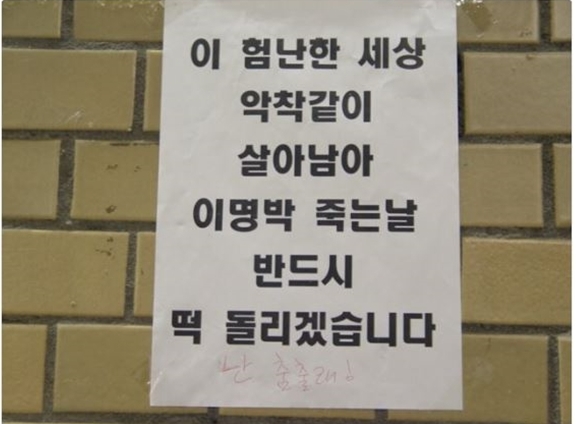 이 험난한 세상
악착같이
살아남아
이명박 죽는날
반드시
떡 돌리겠습니다
난 춤출래!